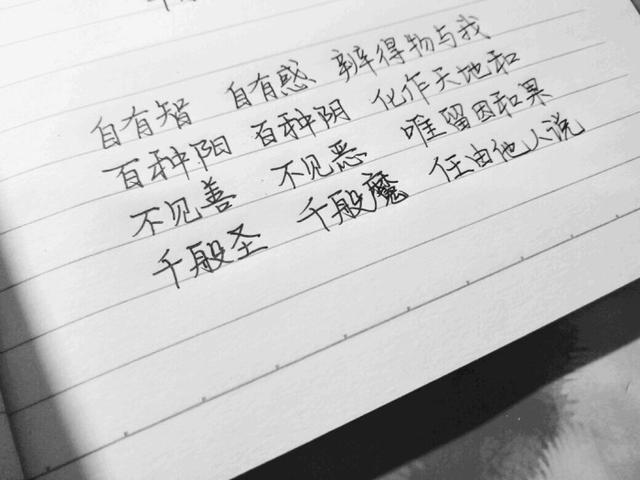 自有智 自有惑 辨得物与我
百种阳 百种阴 化作天地和
不见善 不见恶 唯留因和果
千般圣 千般魔 任由他人说